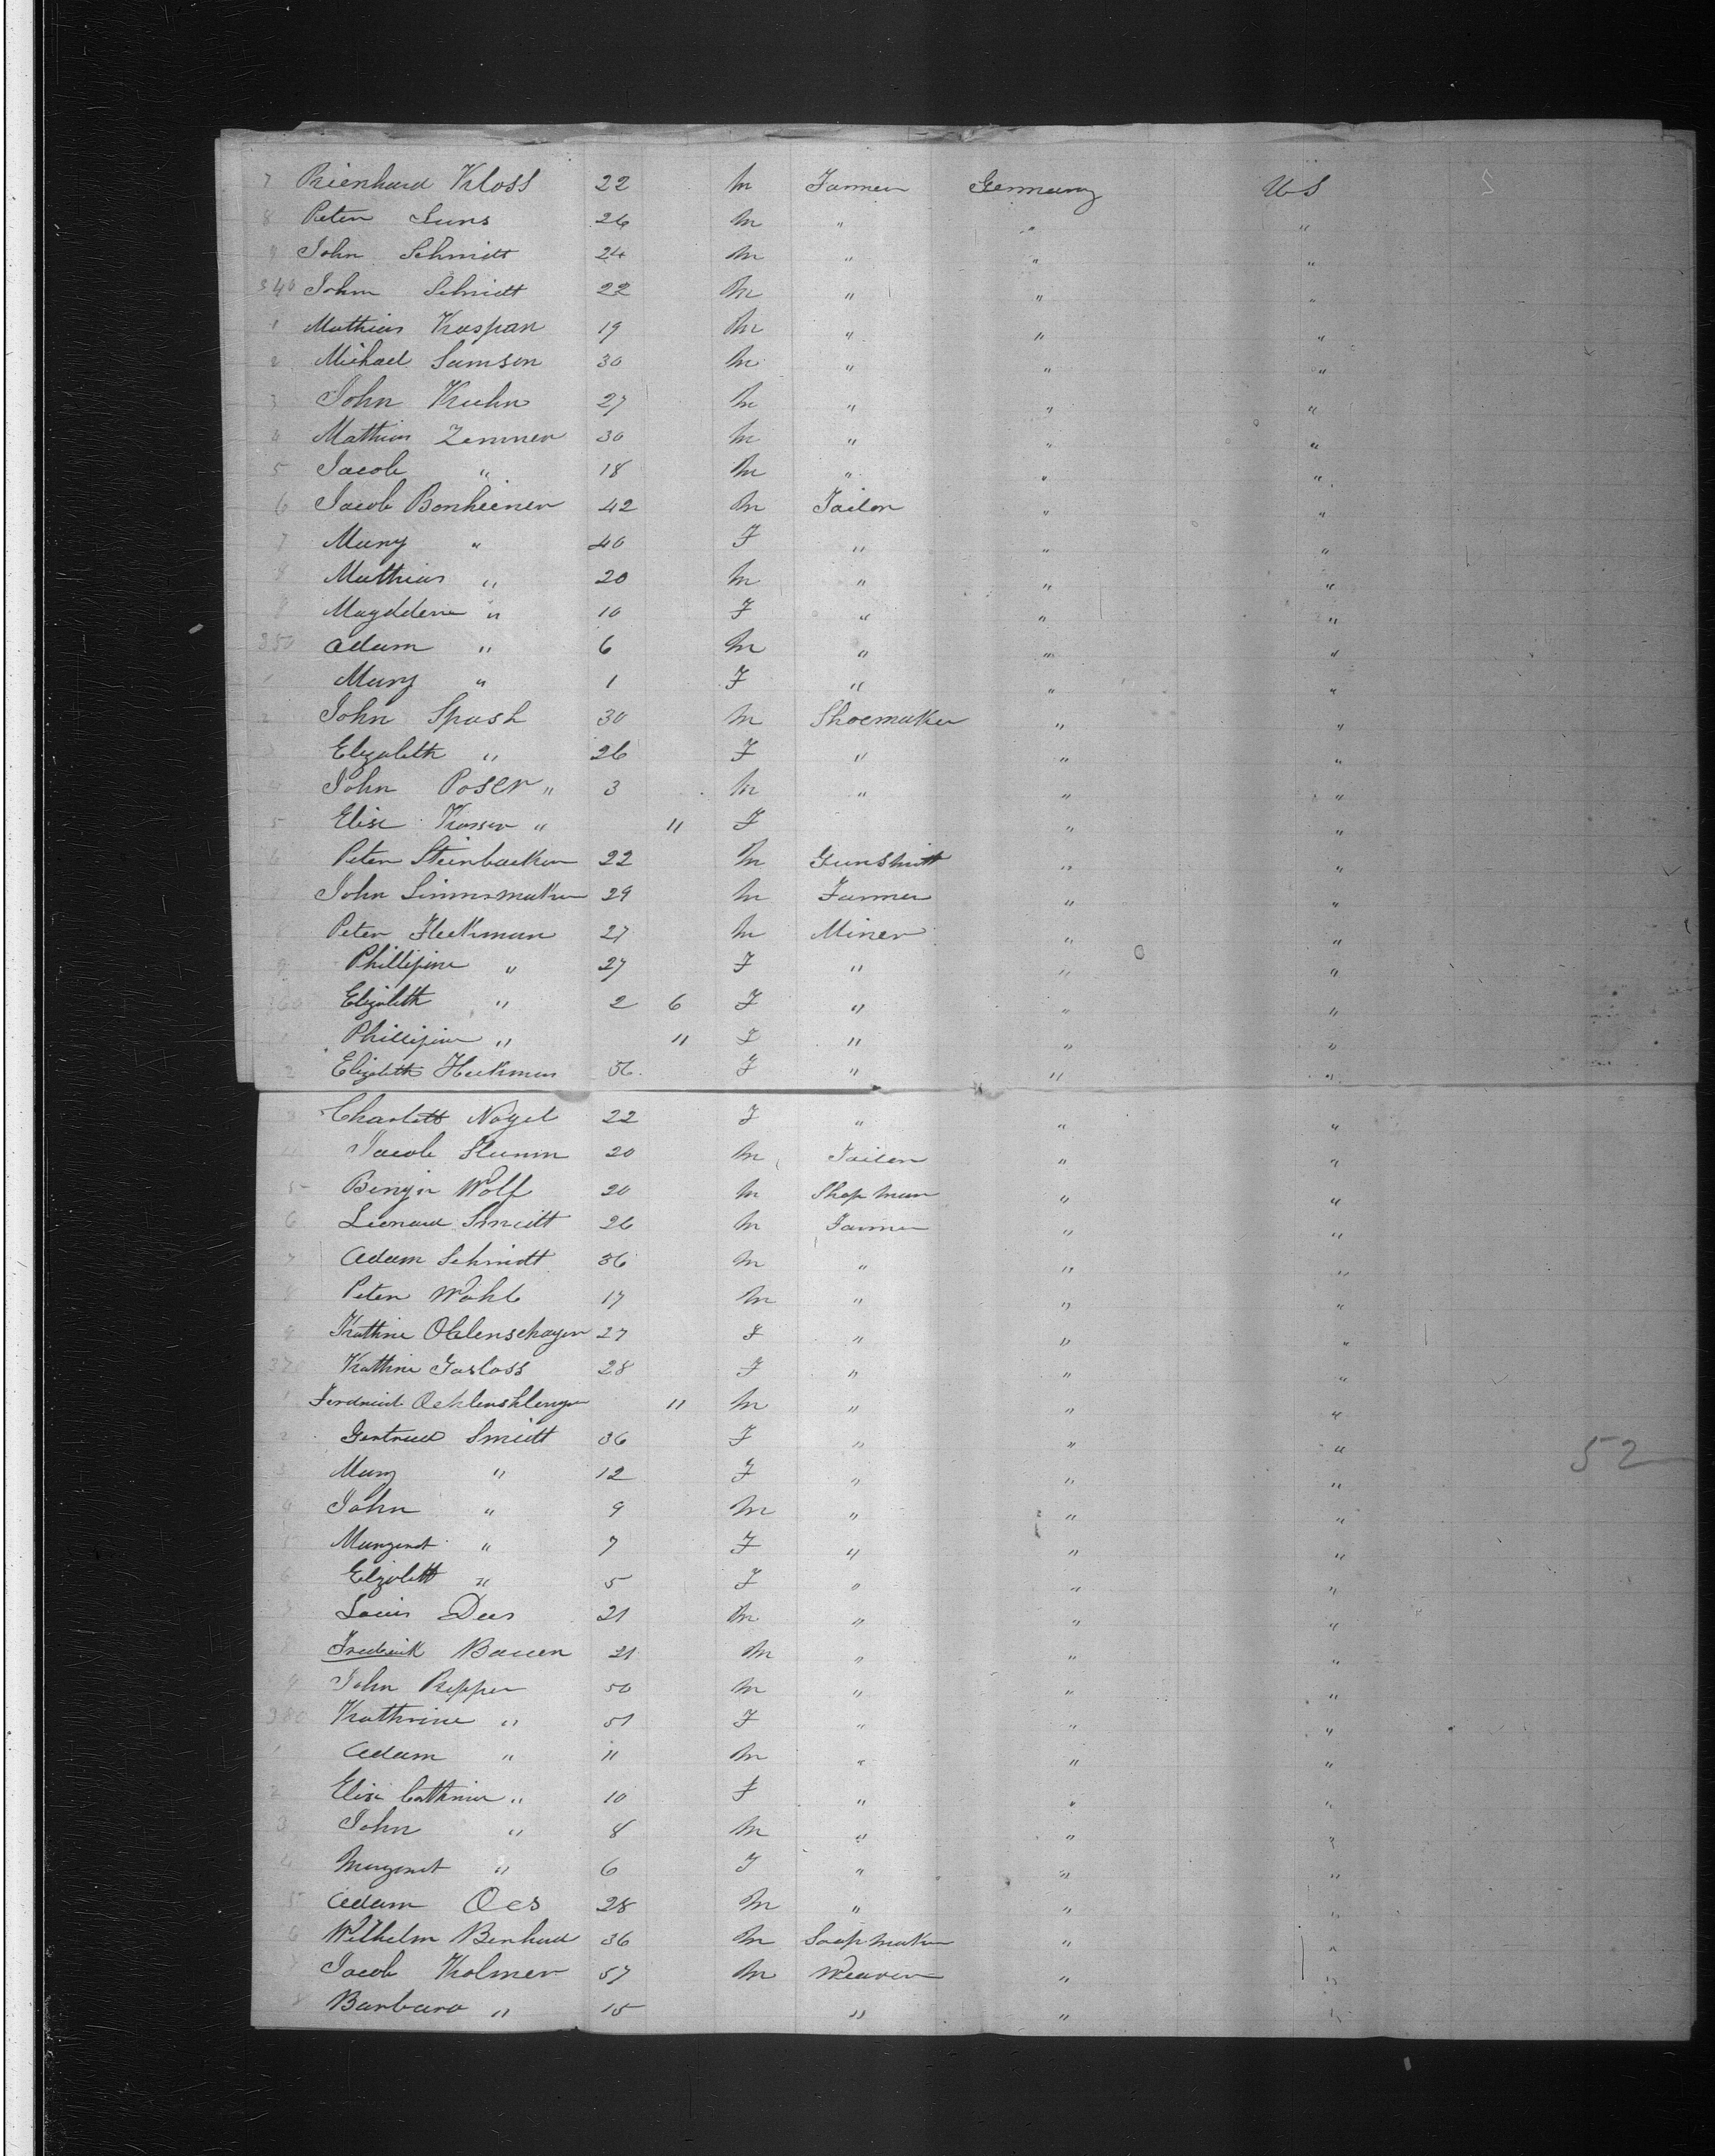 7 Rienhard Kloss 22 M Farmer Germany US
8 Peter Suns 26 M " " "
9 John Schmitt 24 M " " "
340 John Schmidt 22 M " " "
1 Mathias Kaspar 19 M " " "
2 Michael Samson 30 M " " "
3 John Kuhn 27 M " " "
4 Mathias Zimmer 30 M " " "
5 Jacob " 18 M " " "
6 Jacob Bonheimer 42 M Tailor " "
7 Mary " 40 F " " "
8 Mathias " 20 M " " "
9 Magddene " 10 F " " "
350 Adam " 6 M " " "
1 Mary " 1 F " " "
2 John Spash 30 M Shoemaker " "
3 Elizabeth " 26 F " " "
4 John Poser " 3 M " " "
5 Elise " 11 F " "
6 Peter Steinbacker 22 M Gunsmitt " "
7 John 29 M Farmer " "
8 Peter Heckman 27 M Miner " "
9 Phillipine " 27 F " " "
360 Elizabeth " 2 6 F " " "
1 Phillipine " 11 F " " "
2 Elizabeth Heckman 56 F " " "
3 Charlott Nagel 22 F " " "
4 Jacob Stumm 20 M Tailor " "
5 Benjn Wolf 20 M Shop man " "
6 Leonard Smidt 26 M Farmer " "
7 Adam Schmidt 36 M " " "
8 Peter Wohl 17 M " " "
9 Kathrine 27 F " " "
370 Kathrine Garloss 28 F " " "
1 Ferdnand 11 M " " "
2 Gertrud Smidt 36 F " " "
52
3 Mary " 12 F " " "
4 John " 9 M " " "
5 Margaret " 7 F " " "
6 Elizabett " 5 F " " "
7 Louis Dees 21 M " " "
8 Frederick Bauer 21 M " " "
9 John Repper 50 M " " "
380 Kathrine " 51 F " " "
1 Adam " 11 M " " "
2 Elise Cathrine " 10 F " " "
3 John " 8 M " " "
4 Margaret " 6 F " " "
5 Adam Oes 28 M " " "
6 Wilhelm Benhard 36 M Soap maker " "
7 Jacob Kolmer 57 M Weaver " "
8 Barbara " 15 " " "